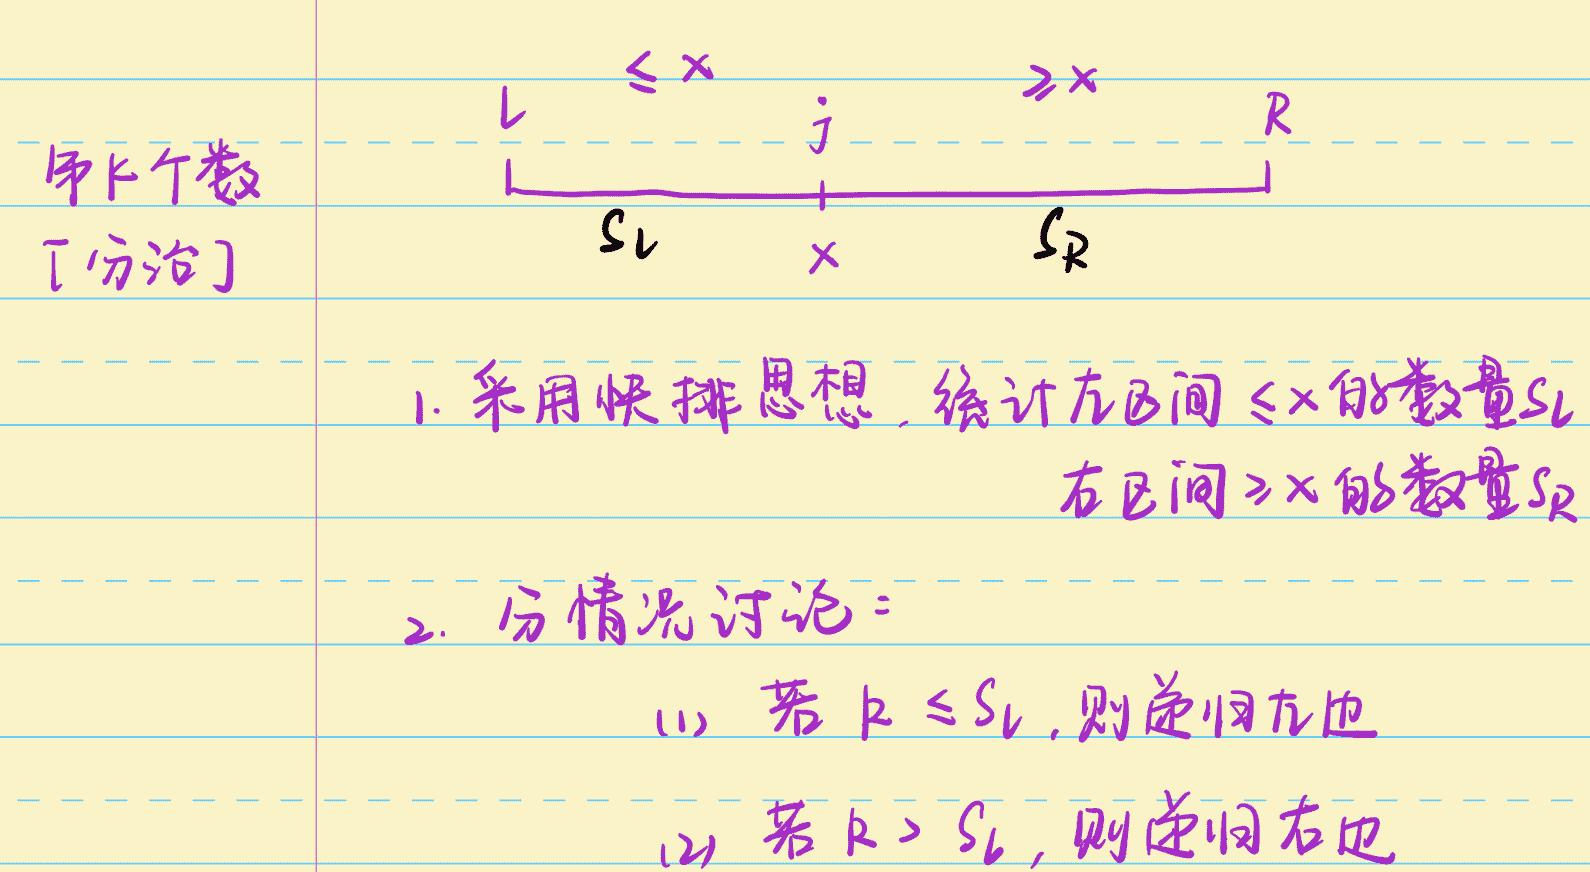 ≤ x ≥ x
L j R
第k个数
S_L x S_R
[分治]
1. 采用快排思想, 统计左区间 ≤ x 的数量 S_L
右区间 ≥ x 的数量 S_R
2. 分情况讨论:
(1) 若 k ≤ S_L, 则递归左边
(2) 若 k > S_L, 则递归右边